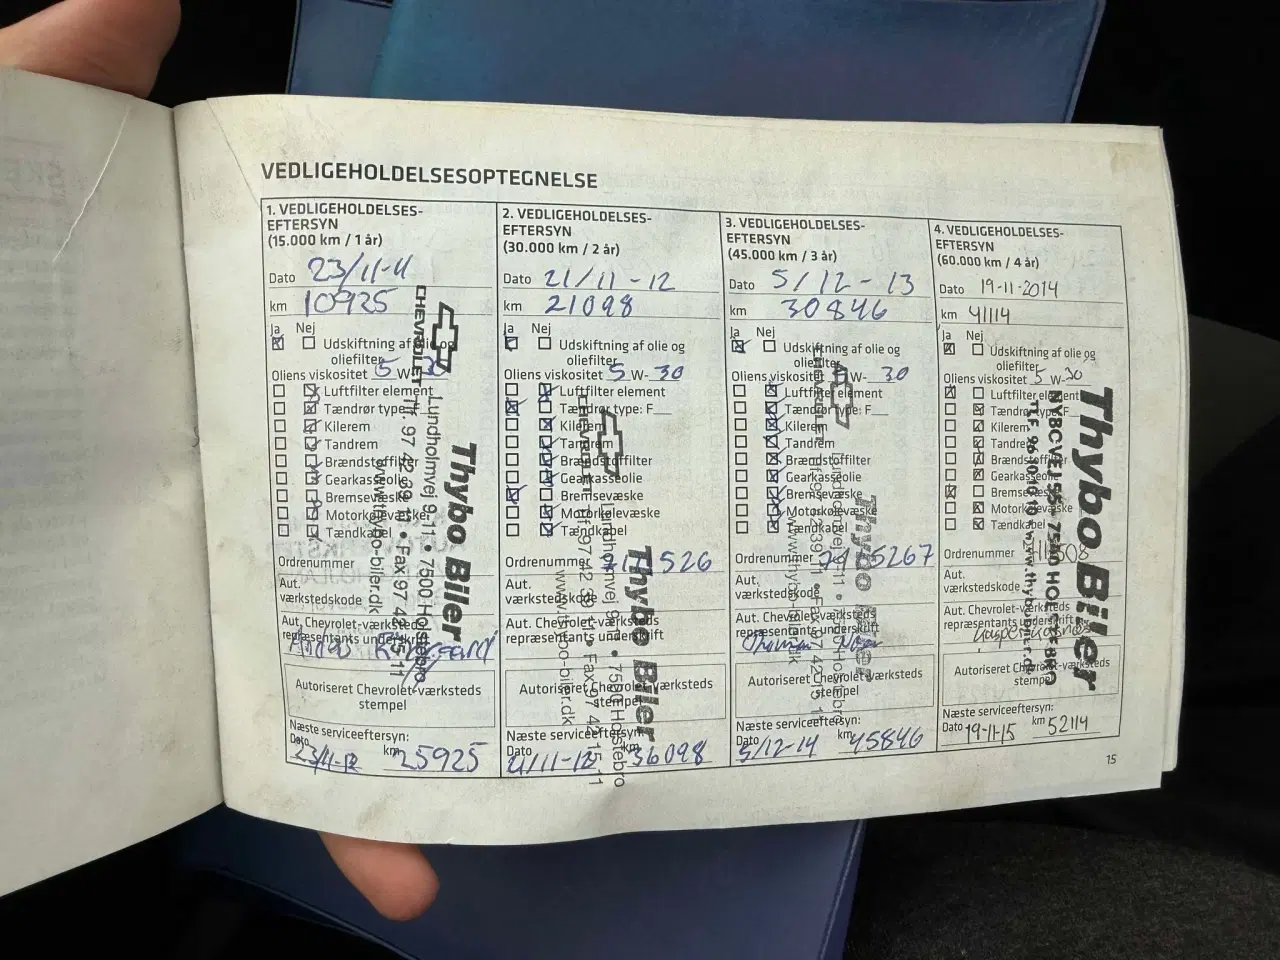 VEDLIGEHOLDELSESOPTEGNELSE
1. VEDLIGEHOLDELSES-
EFTERSYN
(15.000 km / 1 år)
Dato 23/11-11
km 10925
Ja Nej
Udskiftning af olie og
oliefilter
Oliens viskositet 5 W- 30
Luftfilter element
Tændrør type:
Kilerem
Tandrem
Brændstoffilter
Gearkasseolie
Bremsevæske
Motorkølevæske
Tændkabel
Ordrenummer
Aut.
værkstedskode
Aut. Chevrolet-værksteds
repræsentants underskrift
Autoriseret Chevrolet-værksteds
stempel
Næste serviceeftersyn:
Dato km
23/11-12 25925
CHEVROLET
Thybo Biler
Lundholmvej 9-11 • 7500 Holstebro
Tlf. 97 42 39 11 • Fax 97 42 15 11
www.thybo-biler.dk
2. VEDLIGEHOLDELSES-
EFTERSYN
(30.000 km / 2 år)
Dato 21/11-12
km 21098
Ja Nej
Udskiftning af olie og
oliefilter
Oliens viskositet 5 W- 30
Luftfilter element
Tændrør type: F
Kilerem
Tandrem
Brændstoffilter
Gearkasseolie
Bremsevæske
Motorkølevæske
Tændkabel
Ordrenummer
Aut.
værkstedskode
Aut. Chevrolet-værksteds
repræsentants underskrift
Autoriseret Chevrolet-værksteds
stempel
Næste serviceeftersyn:
Dato km
21/11-13 36098
CHEVROLET
Thybo Biler
Lundholmvej 9-11 • 7500 Holstebro
Tlf. 97 42 39 11 • Fax 97 42 15 11
www.thybo-biler.dk
3. VEDLIGEHOLDELSES-
EFTERSYN
(45.000 km / 3 år)
Dato 5/12-13
km 30846
Ja Nej
Udskiftning af olie og
oliefilter
Oliens viskositet W- 30
Luftfilter element
Tændrør type: F
Kilerem
Tandrem
Brændstoffilter
Gearkasseolie
Bremsevæske
Motorkølevæske
Tændkabel
Ordrenummer
Aut.
værkstedskode
Aut. Chevrolet-værksteds
repræsentants underskrift
Autoriseret Chevrolet-værksteds
stempel
Næste serviceeftersyn:
Dato km
5/12-14 45846
CHEVROLET
Thybo Biler
www.thybo-biler.dk
4. VEDLIGEHOLDELSES-
EFTERSYN
(60.000 km / 4 år)
Dato 19-11-2014
km 41114
Ja Nej
Udskiftning af olie og
oliefilter
Oliens viskositet 5 W- 30
Luftfilter element
Tændrør type: F
Kilerem
Tandrem
Brændstoffilter
Gearkasseolie
Bremsevæske
Motorkølevæske
Tændkabel
Ordrenummer
Aut.
værkstedskode
Aut. Chevrolet-værksteds
repræsentants underskrift
Autoriseret Chevrolet-værksteds
stempel
Næste serviceeftersyn:
Dato 19-11-15 km 52114
Thybo Biler
15